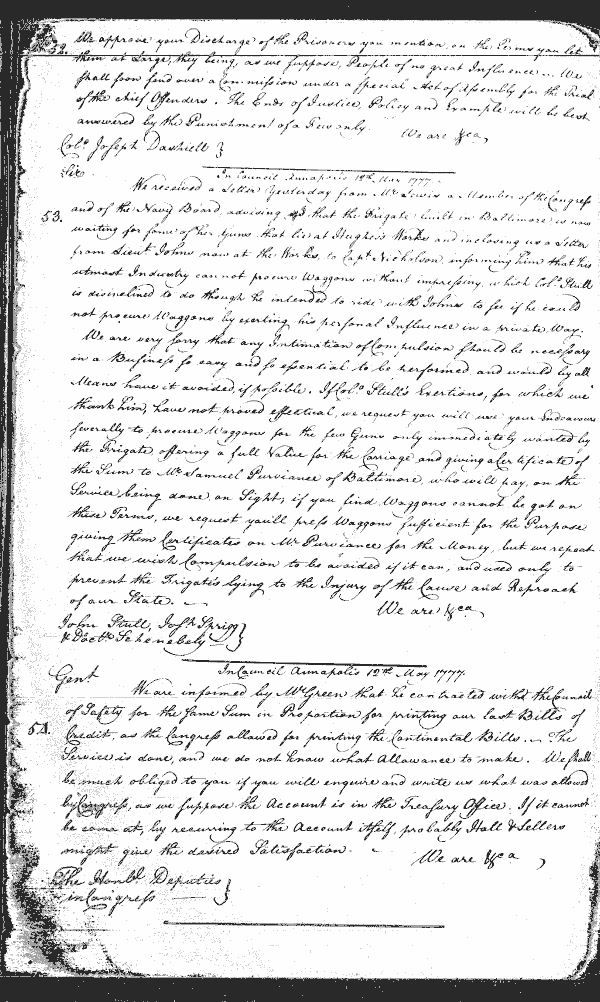 52. We approve your Discharge of the Prisoners you mention, on the Terms you let
them at Large, they being, as we suppose, People of no great Influence ... We
shall soon send over a Commission under a Special Act of Assembly for the Trial
of the chief Offenders. The Ends of Justice, Policy and Example will be best
answered by the Punishment of a Few only. We are &ca
Colo. Joseph Dashiell }
In Council Annapolis 12th May 1777.
Sir
We received a Letter Yesterday from Mr. Lewis a Member of the Congress
53. and of the Navy Board, advising that the Frigate built in Baltimore is now
waiting for some of her Guns that lie at Hughes's Works and inclosing us a Letter
from Lieut Johns now at the Works, to Capt. Nicholson, informing him that his
utmost Industry cannot procure Waggons without impressing, which Colo. Stull
is disinclined to do though he intended to ride with Johns to see if he could
not procure Waggons by exerting his personal Influence in a private Way.
We are very sorry that any Intimation of Compulsion should be necessary
in a Business so easy and so essential to be performed and would by all
Means have it avoided, if possible. If Colo. Stull's Exertions, for which we
thank him, have not proved effectual, we request you will use your Endeavours
severally to procure Waggons for the few Guns only immediately wanted by
the Frigate, offering a full Value for the Carriage and giving a Certificate of
the Sum to Mr. Samuel Purviance of Baltimore, who will pay, on the
Service being done, on Sight; if you find Waggons cannot be got on
these Terms, we request you'll press Waggons sufficient for the Purpose
giving them Certificates on Mr. Purviance for the Money, but we repeat
that we wish Compulsion to be avoided if it can, and used only to
prevent the Frigate's lying to the Injury of the Cause and Reproach
of our State. We are &ca
John Stull, Josh. Sprigg
& Doctr. Schenebely }
In Council Annapolis 12th May 1777.
Gent
We are informed by Mr. Green that he contracted with the Council
54. of Safety for the same Sum in Proportion for printing our last Bills of
Credit, as the Congress allowed for printing the Continental Bills. The
Service is done, and we do not know what Allowance to make. We shall
be much obliged to you if you will enquire and write us what was allowed
by Congress, as we suppose the Account is in the Treasury Office. If it cannot
be come at, by recurring to the Account itself, probably Hall & Sellers
might give the desired Satisfaction. We are &ca
The Honble. Deputies
in Congress }